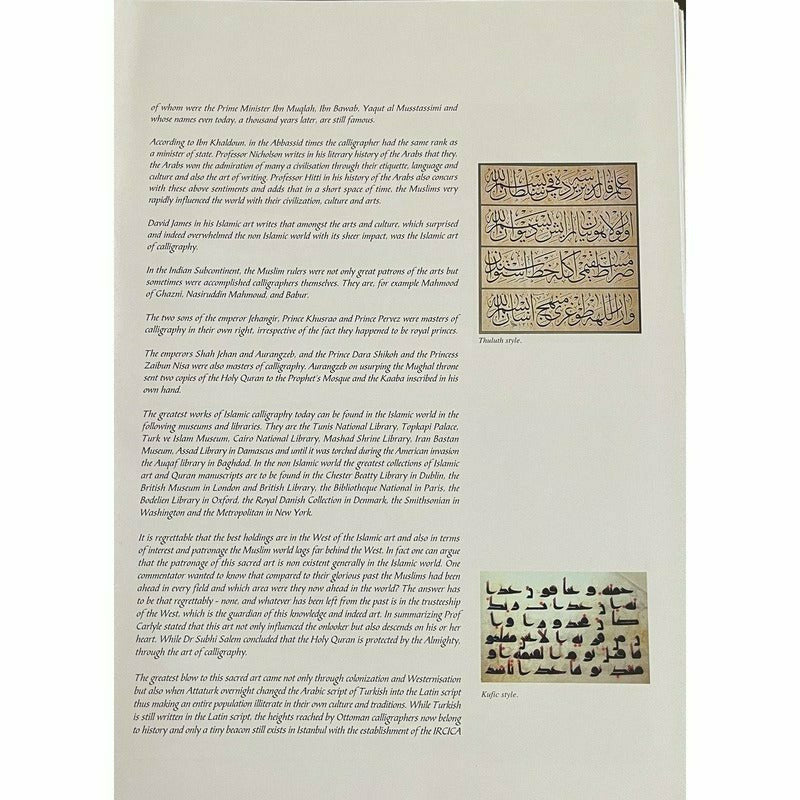 of whom were the Prime Minister Ibn Muqlah, Ibn Bawab, Yaqut al Musstassimi and
whose names even today, a thousand years later, are still famous.
According to Ibn Khaldoun, in the Abbassid times the calligrapher had the same rank as
a minister of state. Professor Nicholson writes in his literary history of the Arabs that they,
the Arabs won the admiration of many a civilisation through their etiquette, language and
culture and also the art of writing. Professor Hitti in his history of the Arabs also concurs
with these above sentiments and adds that in a short space of time, the Muslims very
rapidly influenced the world with their civilization, culture and arts.
David James in his Islamic art writes that amongst the arts and culture, which surprised
and indeed overwhelmed the non Islamic world with its sheer impact, was the Islamic art
of calligraphy.
In the Indian Subcontinent, the Muslim rulers were not only great patrons of the arts but
sometimes were accomplished calligraphers themselves. They are, for example Mahmood
of Ghazni, Nasiruddin Mahmoud, and Babur.
The two sons of the emperor Jehangir, Prince Khusrao and Prince Pervez were masters of
calligraphy in their own right, irrespective of the fact they happened to be royal princes.
The emperors Shah Jehan and Aurangzeb, and the Prince Dara Shikoh and the Princess
Zaibun Nisa were also masters of calligraphy. Aurangzeb on usurping the Mughal throne
sent two copies of the Holy Quran to the Prophet's Mosque and the Kaaba inscribed in his
own hand.
The greatest works of Islamic calligraphy today can be found in the Islamic world in the
following museums and libraries. They are the Tunis National Library, Topkapi Palace,
Turk ve Islam Museum, Cairo National Library, Mashad Shrine Library, Iran Bastan
Museum, Assad Library in Damascus and until it was torched during the American invasion
the Auqaf library in Baghdad. In the non Islamic world the greatest collections of Islamic
art and Quran manuscripts are to be found in the Chester Beatty Library in Dublin, the
British Museum in London and British Library, the Bibliotheque National in Paris, the
Bodelien Library in Oxford, the Royal Danish Collection in Denmark, the Smithsonian in
Washington and the Metropolitan in New York.
It is regrettable that the best holdings are in the West of the Islamic art and also in terms
of interest and patronage the Muslim world lags far behind the West. In fact one can argue
that the patronage of this sacred art is non existent generally in the Islamic world. One
commentator wanted to know that compared to their glorious past the Muslims had been
ahead in every field and which area were they now ahead in the world? The answer has
to be that regrettably - none, and whatever has been left from the past is in the trusteeship
of the West, which is the guardian of this knowledge and indeed art. In summarizing Prof
Carlyle stated that this art not only influenced the onlooker but also descends on his or her
heart. While Dr Subhi Salem concluded that the Holy Quran is protected by the Almighty,
through the art of calligraphy.
The greatest blow to this sacred art came not only through colonization and Westernisation
but also when Attaturk overnight changed the Arabic script of Turkish into the Latin script
thus making an entire population illiterate in their own culture and traditions. While Turkish
is still written in the Latin script, the heights reached by Ottoman calligraphers now belong
to history and only a tiny beacon still exists in Istanbul with the establishment of the IRCICA
Thuluth style.
Kufic style.